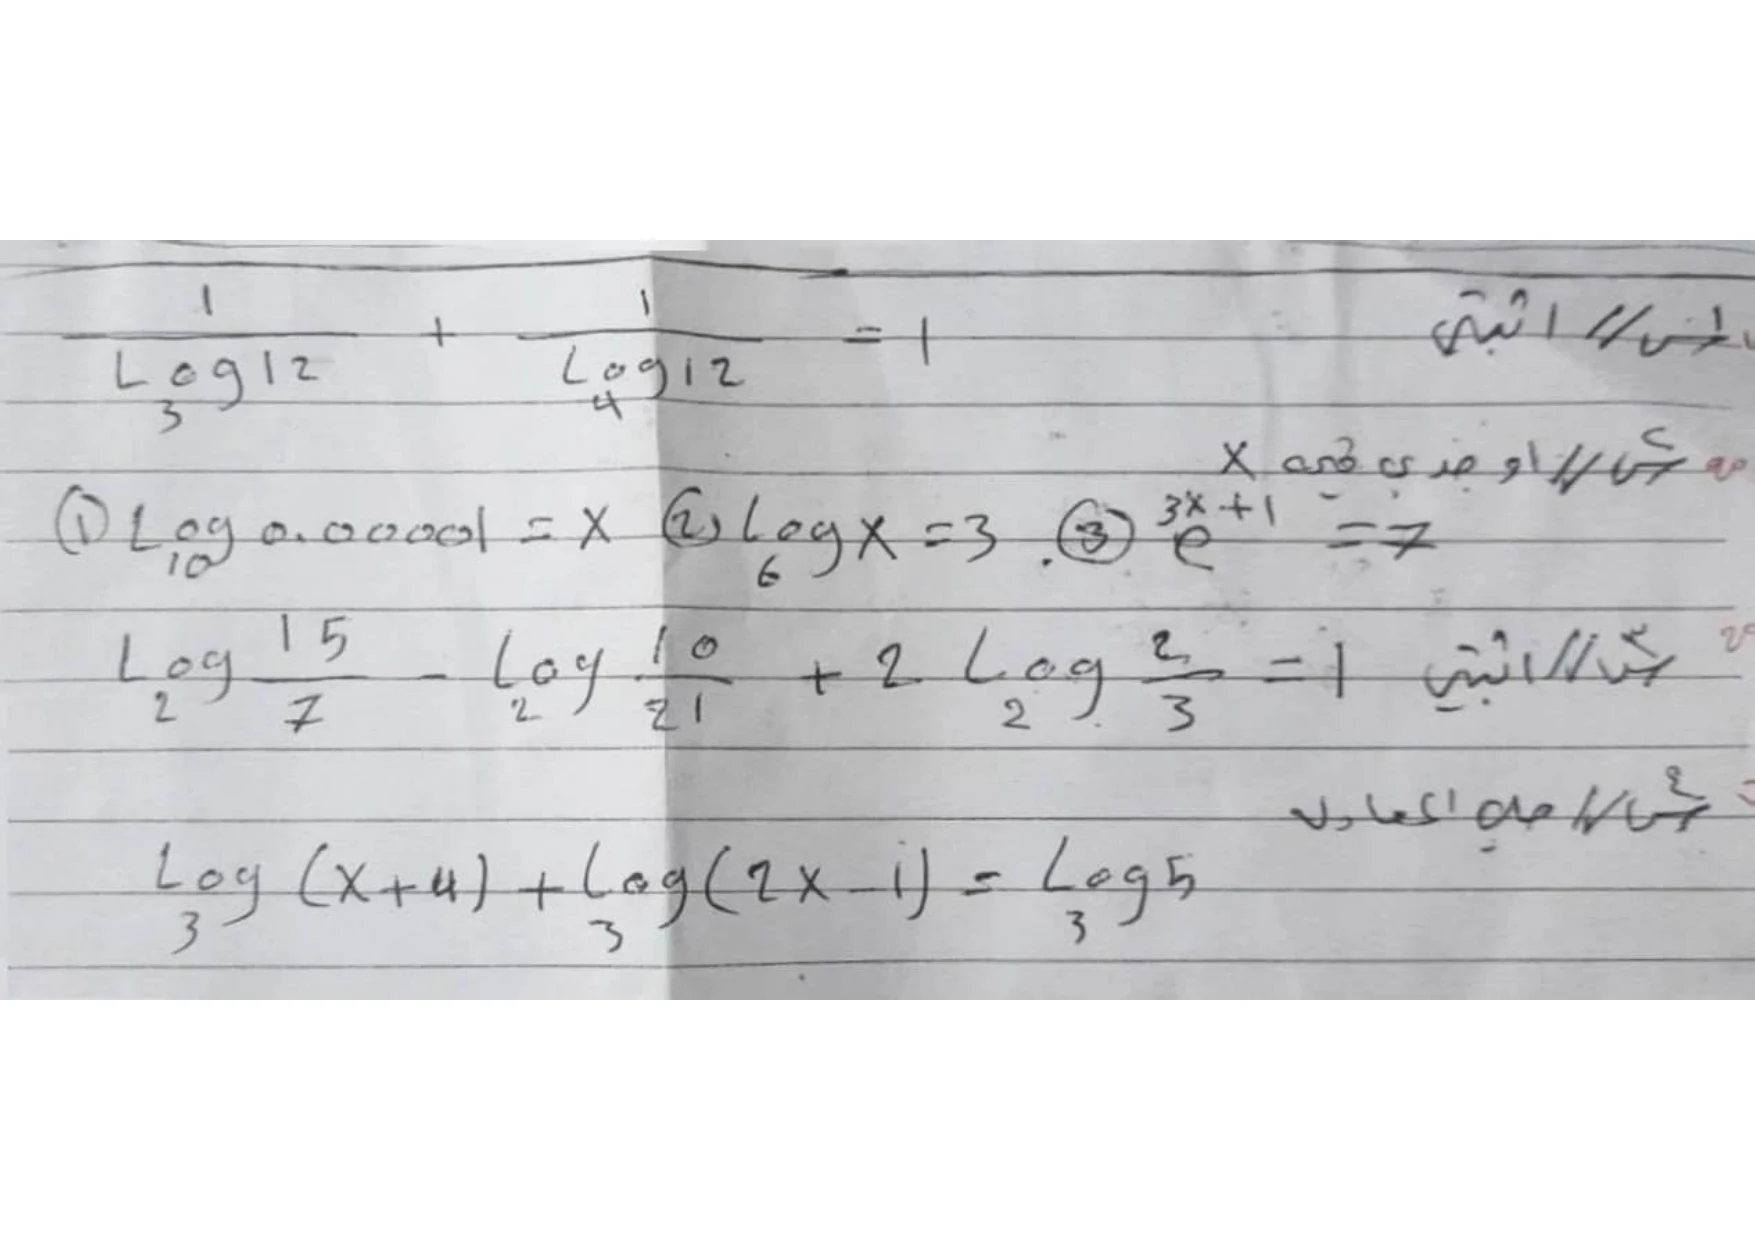 س١// اثبتي 1/Log₃12 + 1/Log₄12 = 1
س٢// اوجدي قيمة x
① Log₁₀ 0.00001 = x ② Log₆ x = 3 . ③ e^(3x+1) = 7
س٣// اثبتي Log₂ 15/7 - Log₂ 10/21 + 2 Log₂ 2/3 = 1
س٤// حل المعادلة
Log₃ (x+4) + Log₃ (2x-1) = Log₃ 5